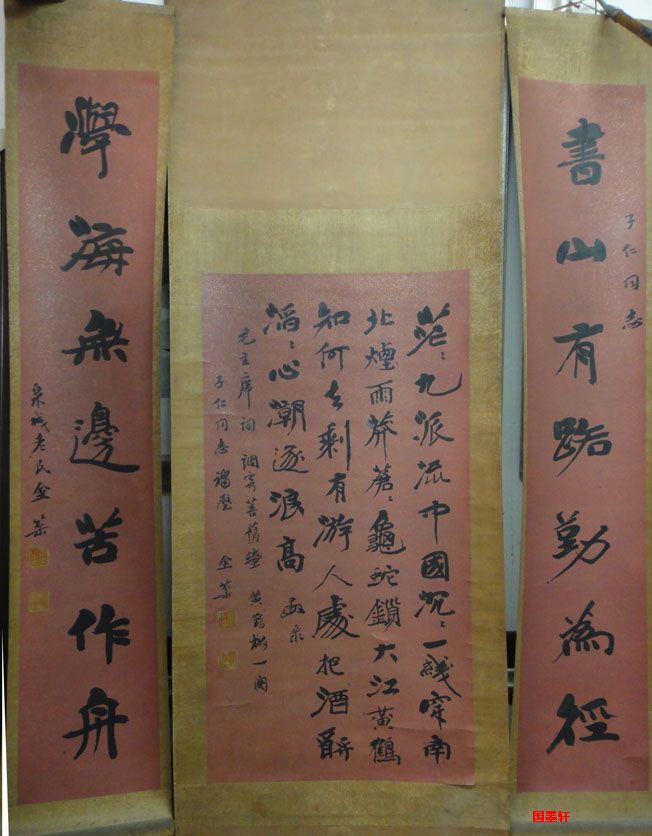 書山有路勤為徑
子仁同志
茫〻九派流中國沉〻一綫穿南
北煙雨莽蒼〻龜蛇鎖大江黄鶴
知何去剩有游人處把酒酹
滔〻心潮逐浪高 敬录
毛主席詞 調寄菩薩蠻 黄鶴樓一闋
子仁同志補壁 金棻
學海無邊苦作舟
泉城老民金棻
国墨轩